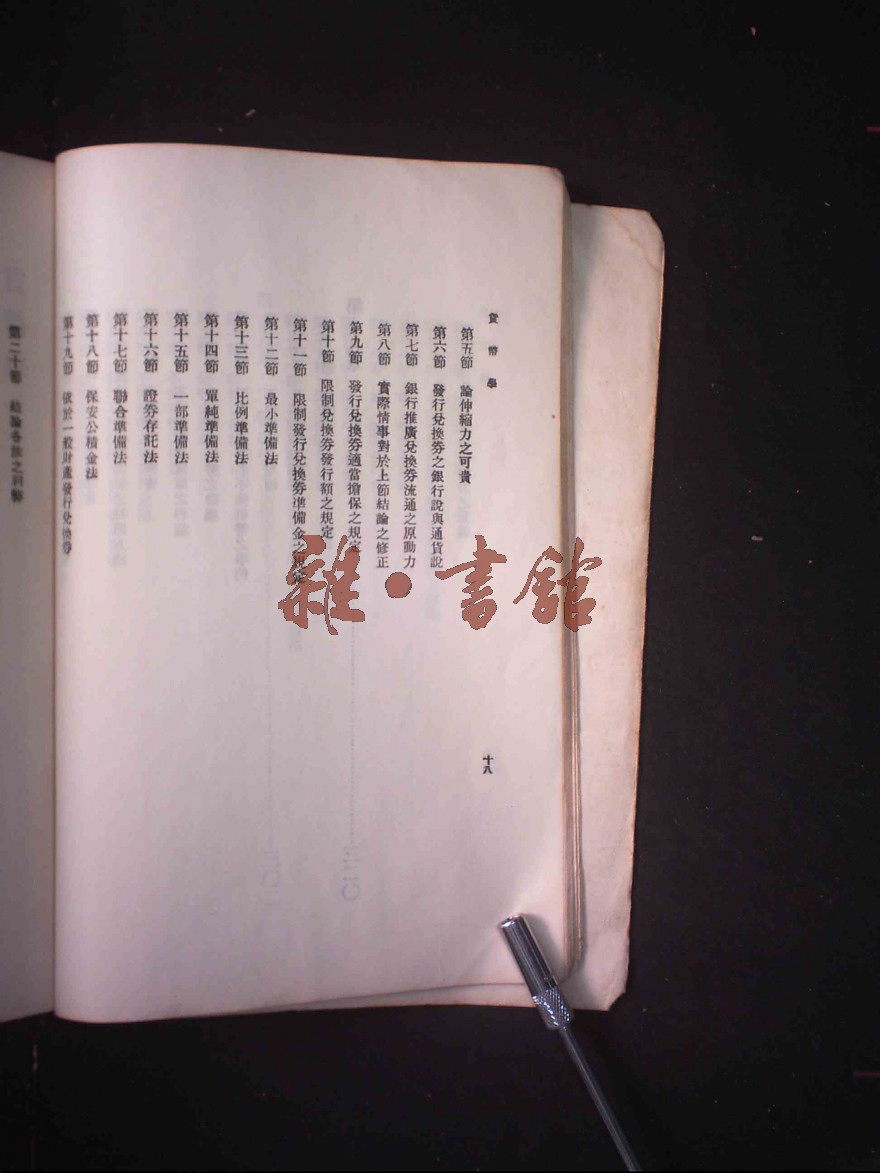 貨幣學
十八
第五節 論伸縮力之可貴
第六節 發行兌換券之銀行說與通貨說
第七節 銀行推廣兌換券流通之原動力
第八節 實際情事對於上節結論之修正
第九節 發行兌換券適當擔保之規定
第十節 限制兌換券發行額之規定
第十一節 限制發行兌換券準備金之規定
第十二節 最小準備法
第十三節 比例準備法
第十四節 單純準備法
第十五節 一部準備法
第十六節 證券存託法
第十七節 聯合準備法
第十八節 保安公積金法
第十九節 依於一般財產發行兌換券
第二十節 結論各法之利弊
雜·書館